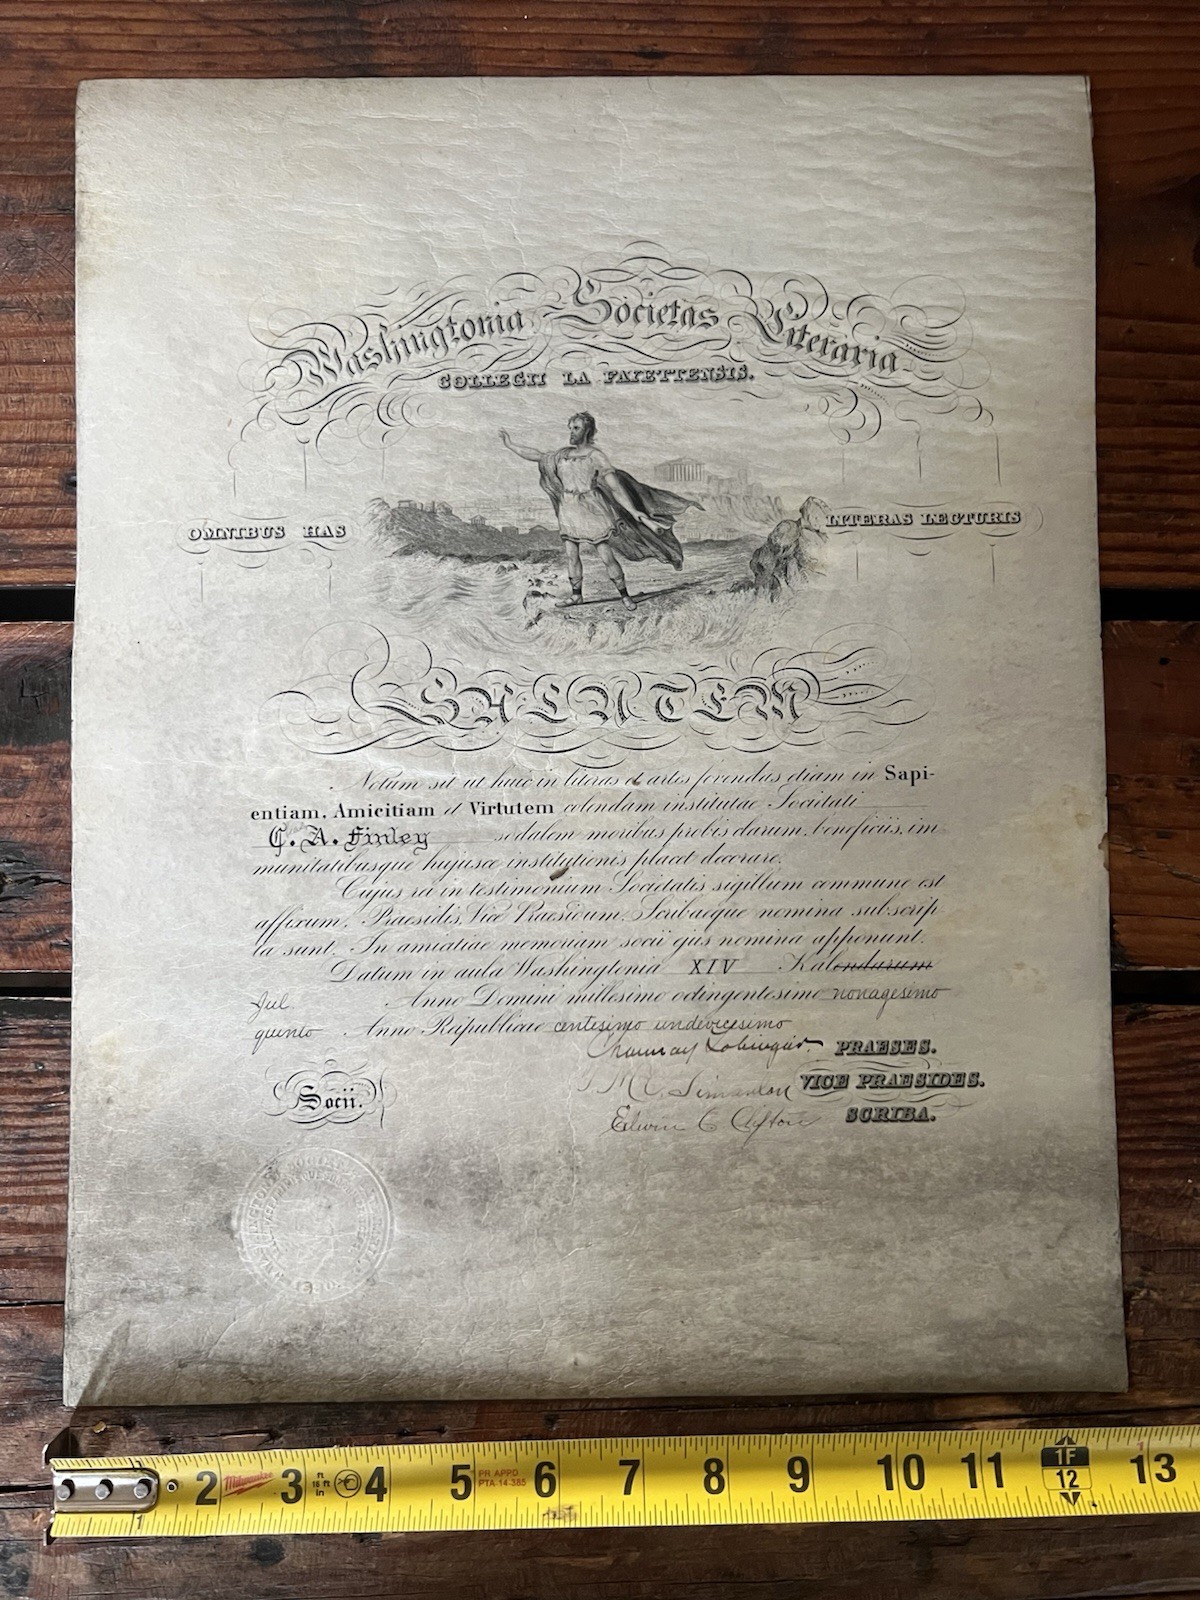 Washingtonia Societas Literaria
COLLEGII LA FAYETTENSIS.
OMNIBUS HAS LITERAS LECTURIS
SALUTEM
Notum sit ut huic in literas et artes fovendas etiam in Sapi-
entiam, Amicitiam et Virtutem colendam institutae Societati
C. A. Finley sodalem moribus probis clarum, beneficiis, im
munitatibusque hujusce institutionis placet decorare.
Cujus rei in testimonium Societatis sigillum commune est
affixum, Praesidis, Vice Praesidum, Scribaeque nomina subscrip-
ta sunt. In amicitiae memoriam socii ejus nomina apponunt.
Datum in aula Washingtonia XIV Kalendarum
Jul Anno Domini millesimo octingentesimo nonagesimo
quinto Anno Rapublicae centesimo undevicesimo
PRAESES.
VICE PRAESIDES.
Edwin C SCRIBA.
Socii.
2 Milwaukee 3 ft 16 ft in 4 5 PR.APPD PTA-14-385 6 7 8 9 10 11 1F 12 13